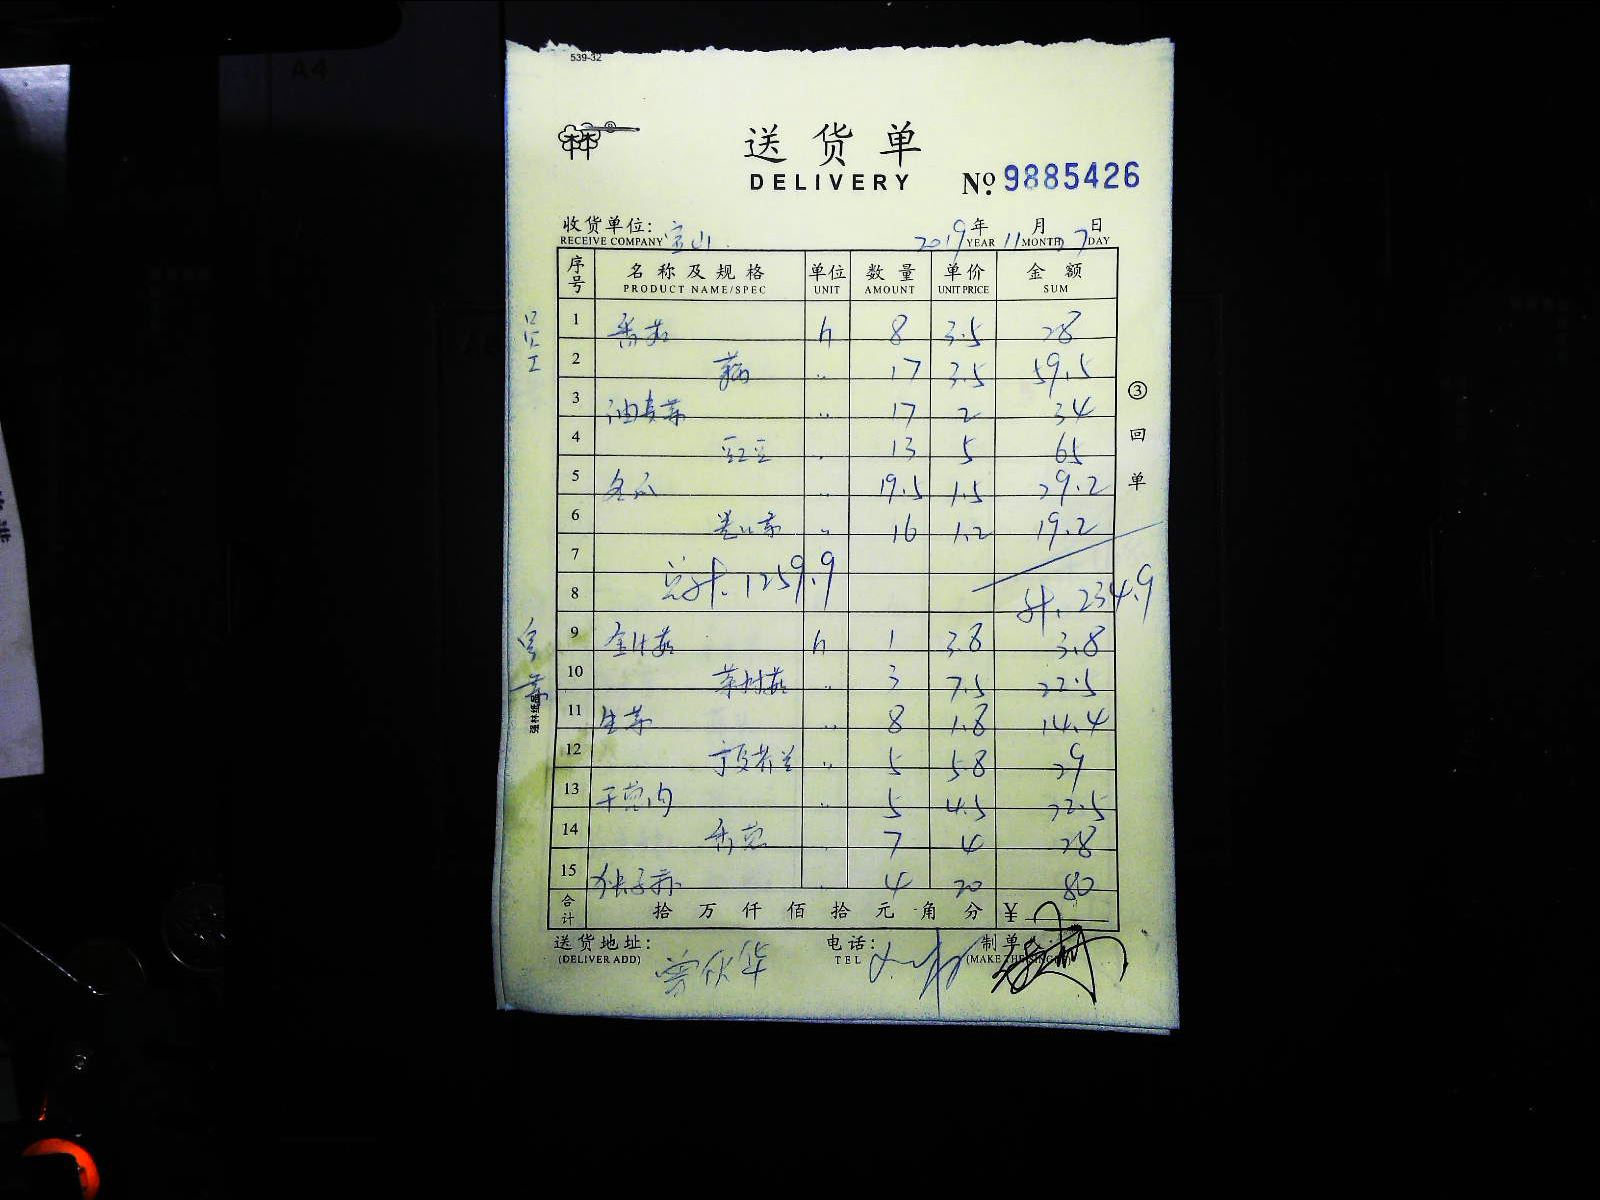 539-32
送货单
DELIVERY
No. 9885426
收货单位: 宝山 2019年 11月 7日
RECEIVE COMPANY YEAR MONTH DAY
序号 名称及规格 单位 数量 单价 金额
PRODUCT NAME/SPEC UNIT AMOUNT UNIT PRICE SUM
1 8 3.5 28
2 17 3.5 59.5
3 油麦菜 17 2 34
4 豇豆 13 5 65
5 冬瓜 19.5 1.5 29.2
6 16 1.2 19.2
7 总计.1259.9
8 计.234.9
9 金针菇 1 3.8 3.8
10 茶树菇 3 7.5 22.5
11 生菜 8 1.8 14.4
12 5 5.8 29
13 5 4.5 22.5
14 7 4 28
15 4 20 80
合计 拾 万 仟 佰 拾 元 角 分 ¥
送货地址: 电话: 制单
(DELIVER ADD) TEL
员工
③回单
强林纸品
A4